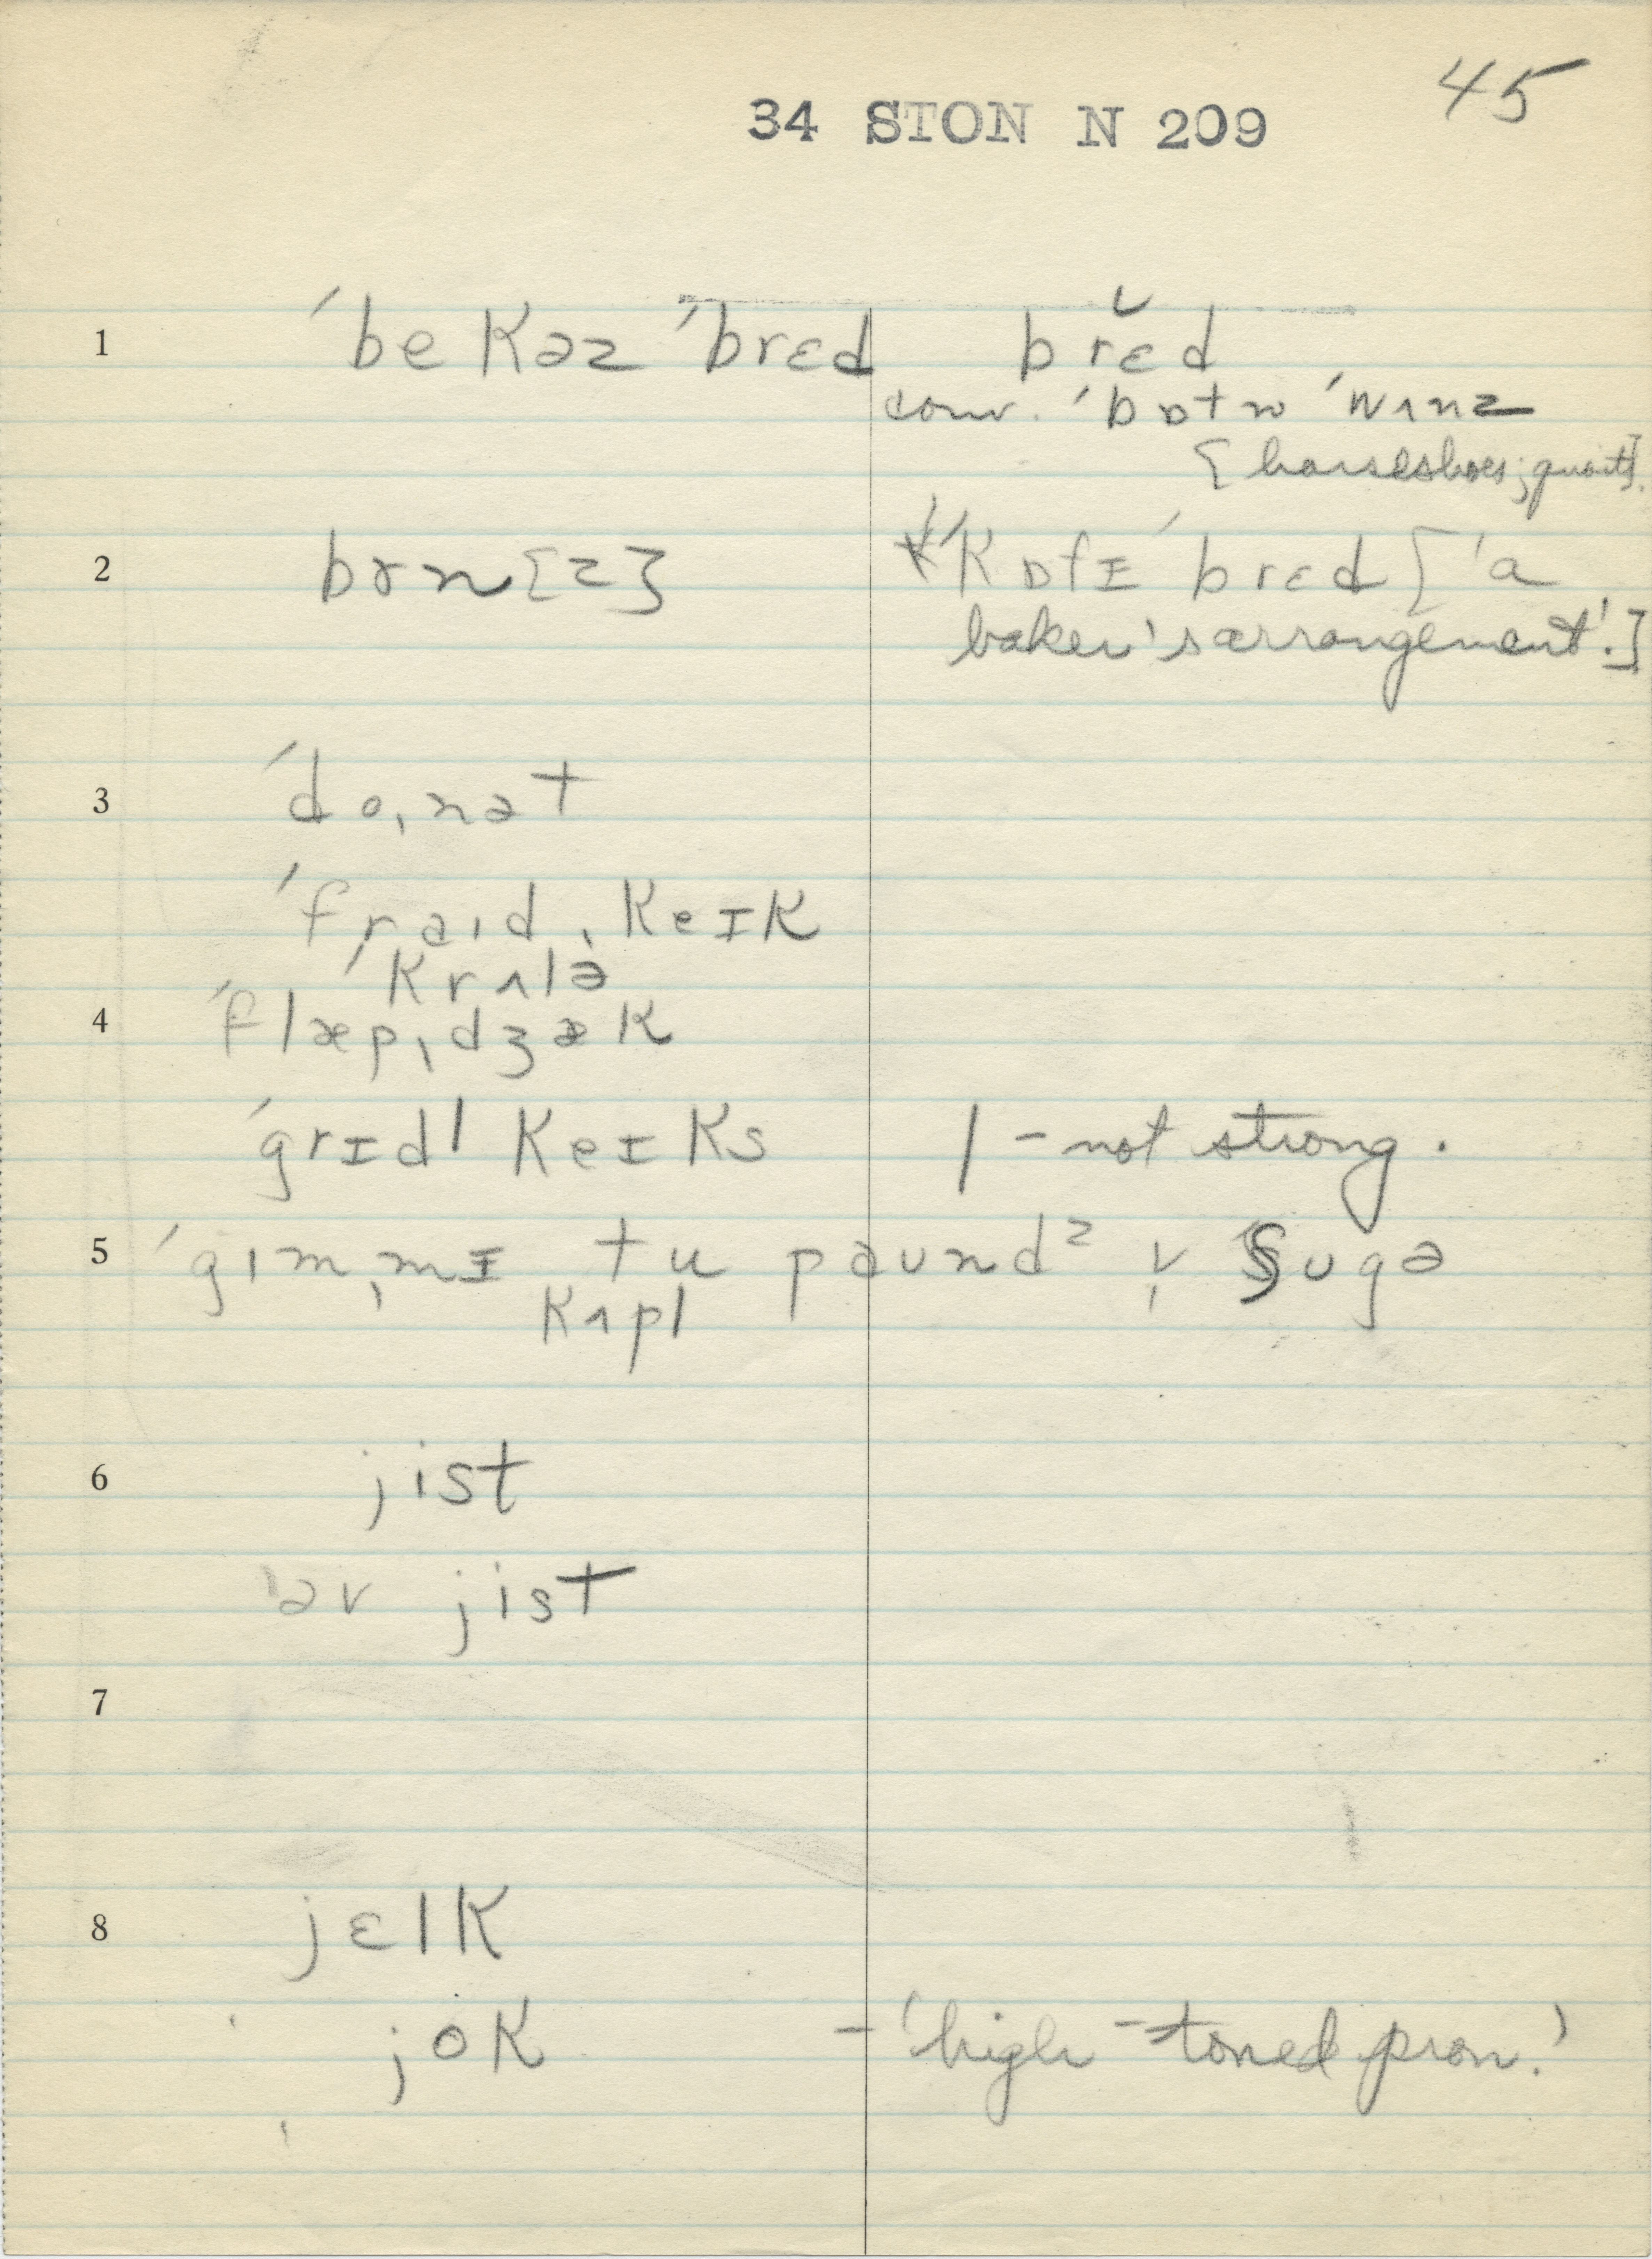 45
34 STON N 209
1 ˈbekəz ˈbrɛd brɛ̆d
conv. ˈbɒtn ˈwɪnz
[horseshoes; quoits].
2 bɤn[z] ˈkɒfɪ ˈbrɛd ['a
baker's arrangement'.]
3 ˈdoˌnət
ˈfraɪdˌkeɪk
ˈkrʌlə
4 ˈflæpˌdʒæk
ˈgrɪdl keɪks l - not strong.
5 ˈgɪmˌmɪ tu paundᶻ v̩ ʃugə
kʌpl
6 jist
əv jist
7
8 jɛlk
jok - 'high-toned pron.'